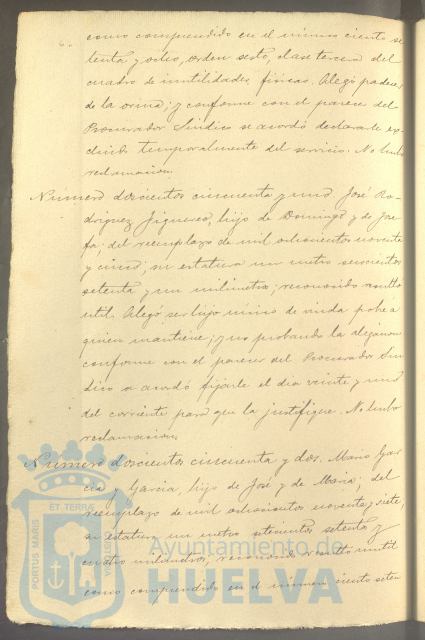 como comprendido en el número ciento se
tenta y ocho, orden sesto, clase tercera del
cuadro de inutilidades físicas. Alegó padecer
de la orina; y conforme con el parecer del
Procurador Síndico se acordó declararle ex
cluido temporalmente del servicio. No hubo
reclamacion.
Número doscientos cincuenta y uno José Ro-
driguez Figueroa, hijo de Domingo y de Jose
fa; del reemplazo de mil ochocientos noventa
y cinco; su estatura un metro seiscientos
setenta y un milímetros; reconocido resultó
útil. Alegó ser hijo único de viuda pobre a
quien mantiene; y no probando la alegacion
conforme con el parecer del Procurador Sín
dico se acordó fijarle el dia veinte y uno
del corriente para que la justifique. No hubo
reclamacion.
Número doscientos cincuenta y dos. Mario Gar
cia y Garcia, hijo de José y de Maria; del
reemplazo de mil ochocientos noventa y siete,
su estatura un metro setenta y
cuatro milímetros, reconocido resultó inútil
como comprendido en el número ciento seten
PORTUS MARIS
ET TERRÆ
CUSTODIA
Ayuntamiento de
HUELVA